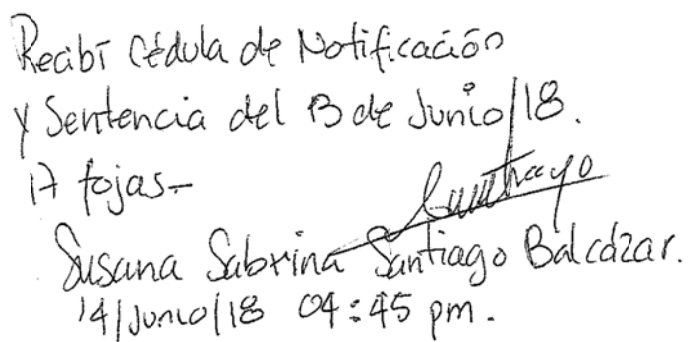 Recibí Cédula de Notificación
y Sentencia del 13 de Junio/18.
17 fojas-
Susana Sabrina Santiago Balcázar.
14/Junio/18 04:45 pm.